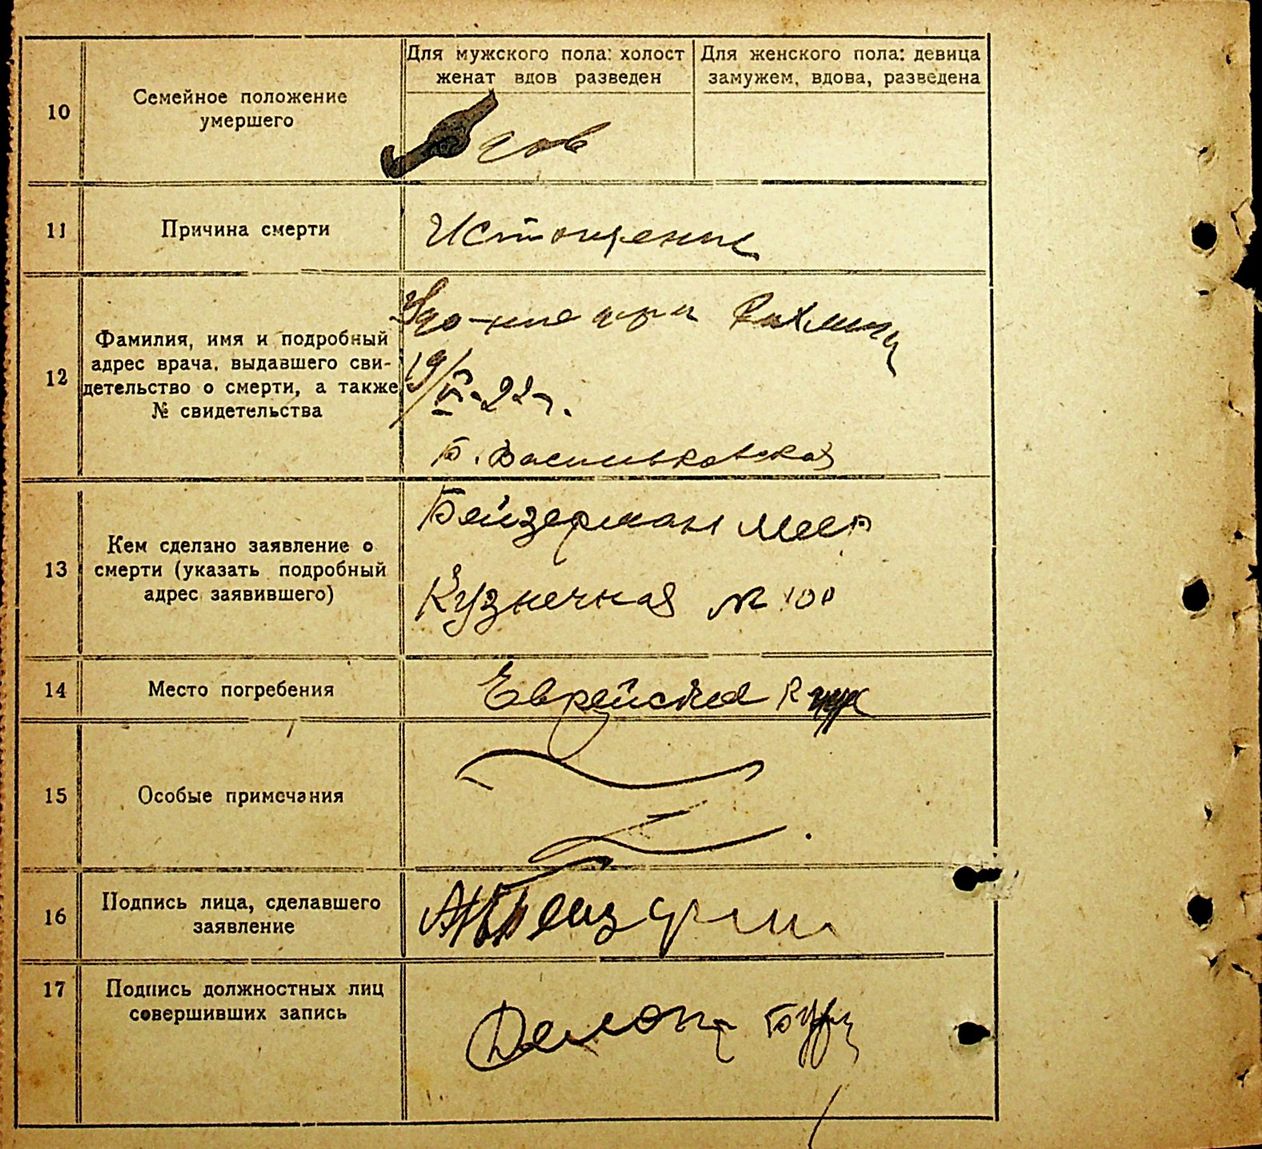 10
Семейное положение
умершего
Для мужского пола: холост
женат вдов разведен
Для женского пола: девица
замужем, вдова, разведена
11
Причина смерти
Истощение
12
Фамилия, имя и подробный
адрес врача, выдавшего сви-
детельство о смерти, а также
№ свидетельства
Удо-ние
19/VI-22г.
Б. Васильковская
13
Кем сделано заявление о
смерти (указать подробный
адрес заявившего)
Бейзерман Меер
Кузнечная № 100
14
Место погребения
Еврейское
15
Особые примечания
16
Подпись лица, сделавшего
заявление
17
Подпись должностных лиц
совершивших запись